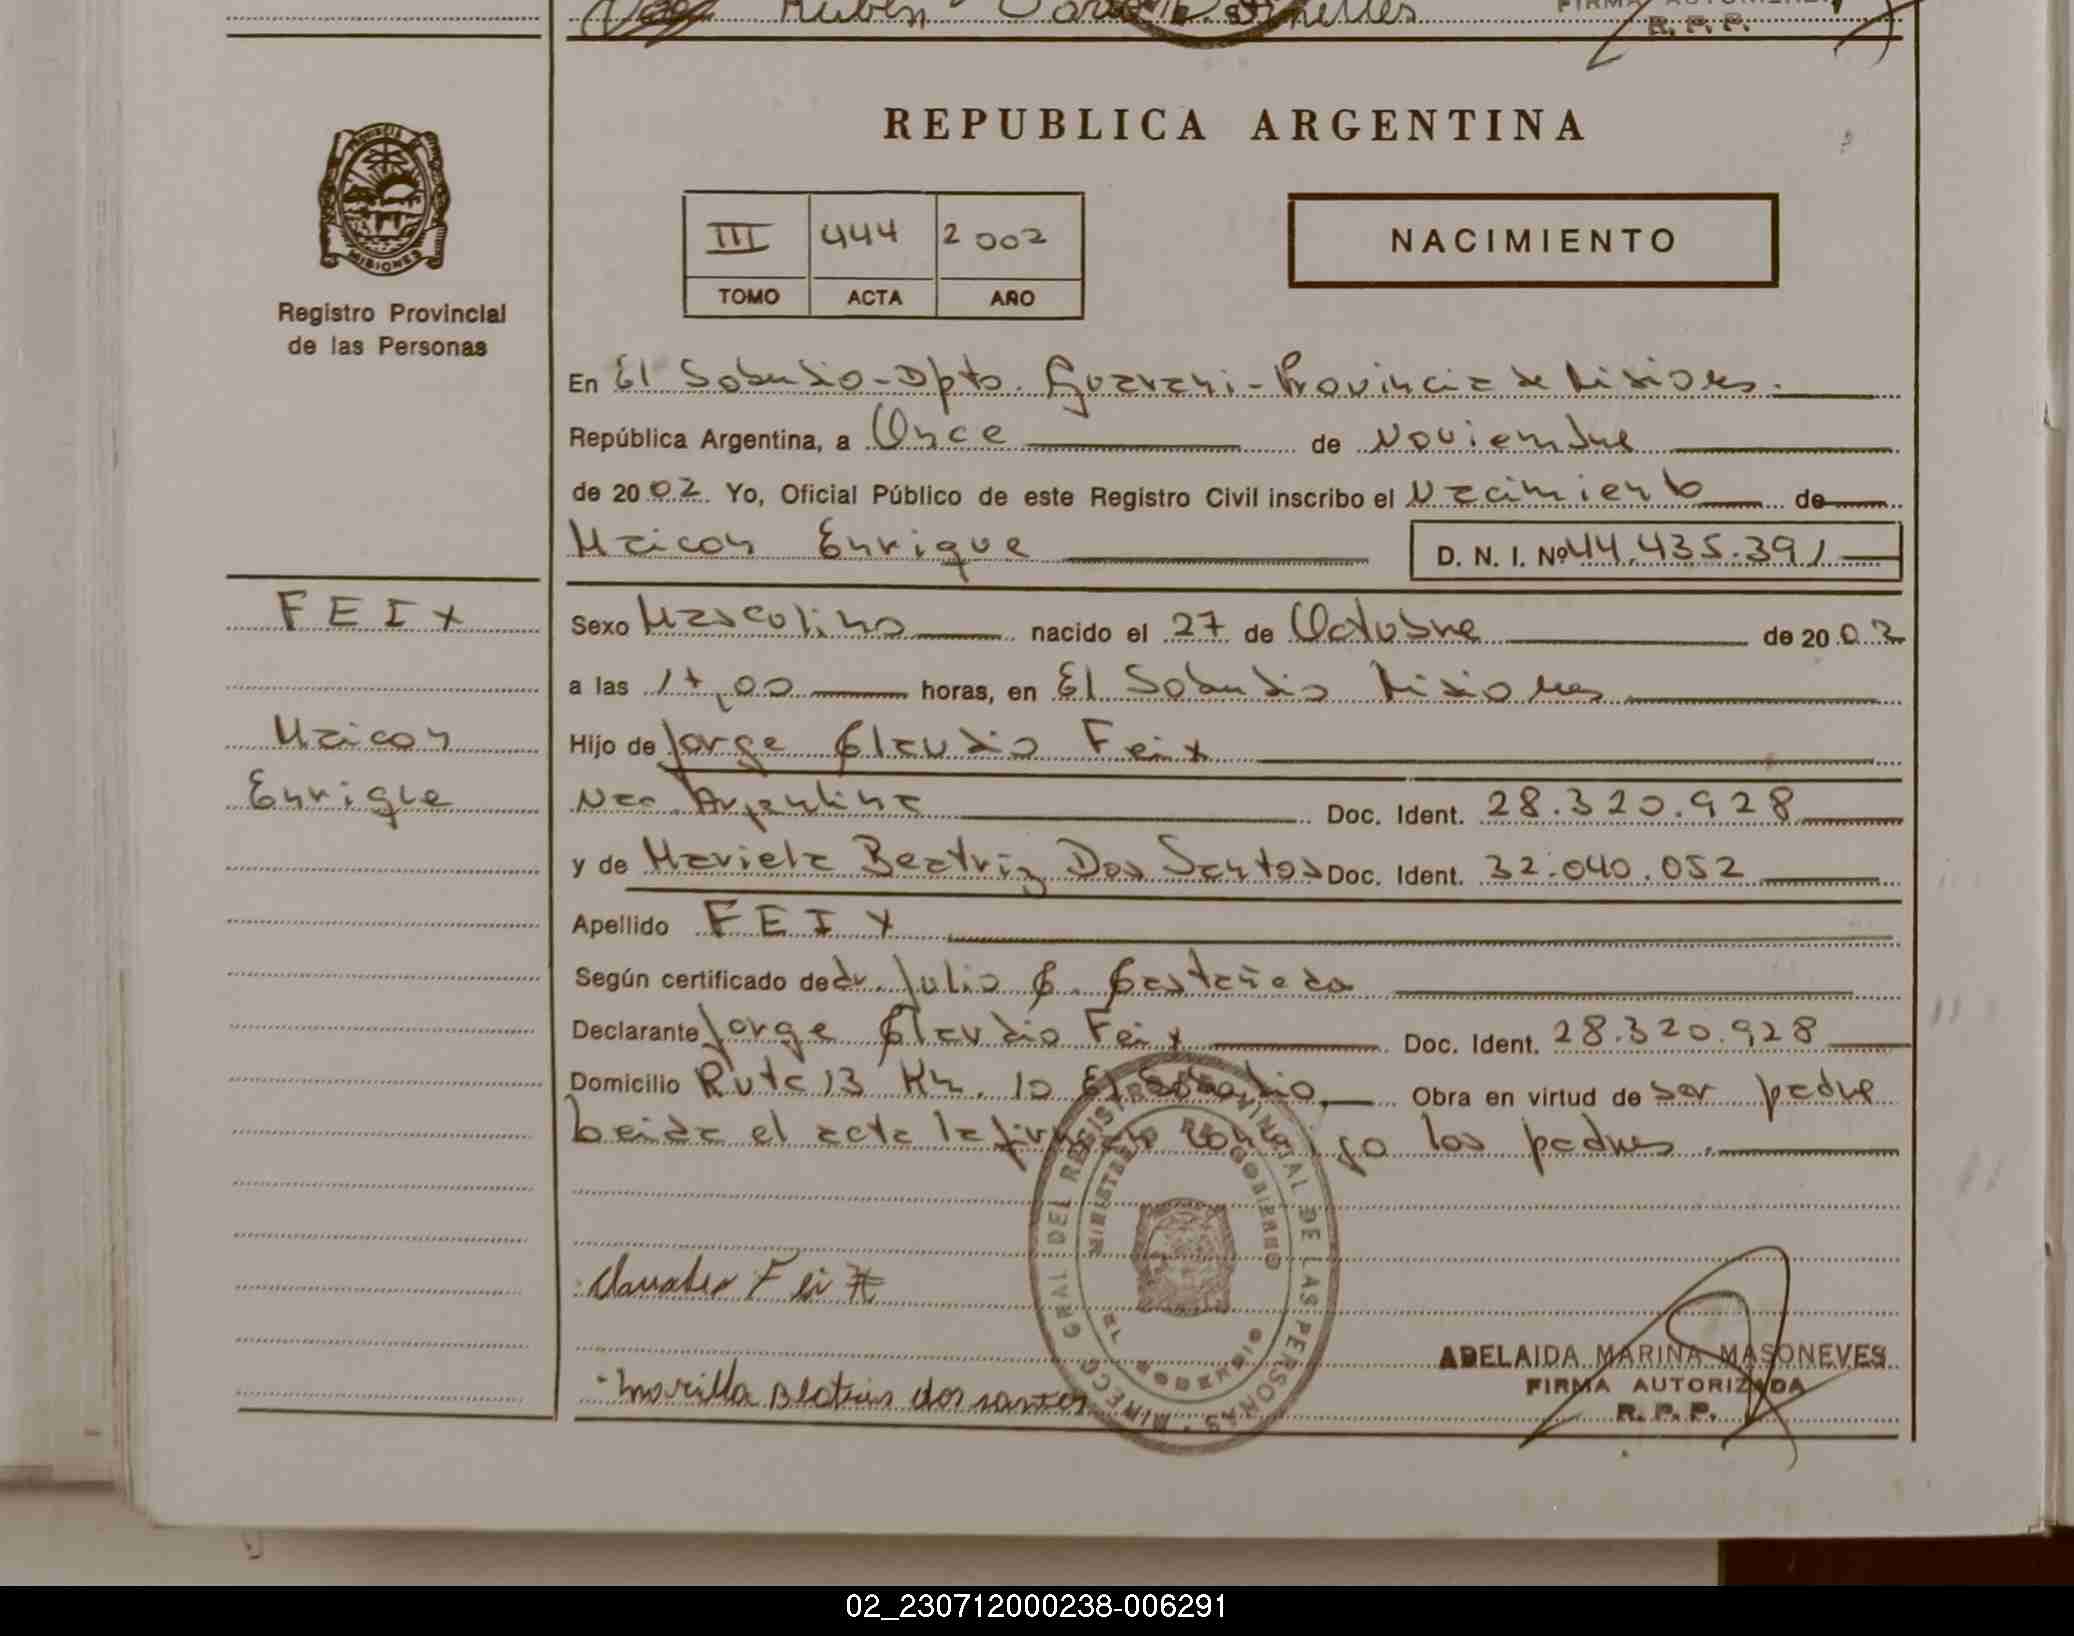 Ruben
FIRMA AUTORIZADA
R. P. P.
PROVINCIA
MISIONES
Registro Provincial
de las Personas
REPUBLICA ARGENTINA
III 444 2002
TOMO ACTA AÑO
NACIMIENTO
En El Soberbio - Dpto. Guarani - Provincia de Misiones.
República Argentina, a Once de Noviembre
de 2002 Yo, Oficial Público de este Registro Civil inscribo el Nacimiento de
Maicon Enrique D. N. I. Nº 44.435.391
FEIX
Maicon
Enrique
Sexo Masculino nacido el 27 de Octubre de 2002
a las 17,00 horas, en El Soberbio Misiones
Hijo de Jorge Claudio Feix
Nac. Argentina Doc. Ident. 28.320.928
y de Mariela Beatriz Dos Santos Doc. Ident. 32.040.052
Apellido FEIX
Según certificado de dr. Julio C. Castañeda
Declarante Jorge Claudio Feix Doc. Ident. 28.320.928
Domicilio Ruta 13 Km. 10 El Soberbio Obra en virtud de ser padre
leida el acta la firman conmigo los padres.
GRAL DEL REGISTRO PROVINCIAL DE LAS PERSONAS
MINISTERIO DE GOBIERNO
EL SOBERBIO
Claudio Feix
Morilla Beatris dos santos
ADELAIDA MARINA MASONEVES
FIRMA AUTORIZADA
R. P. P.
02_230712000238-006291